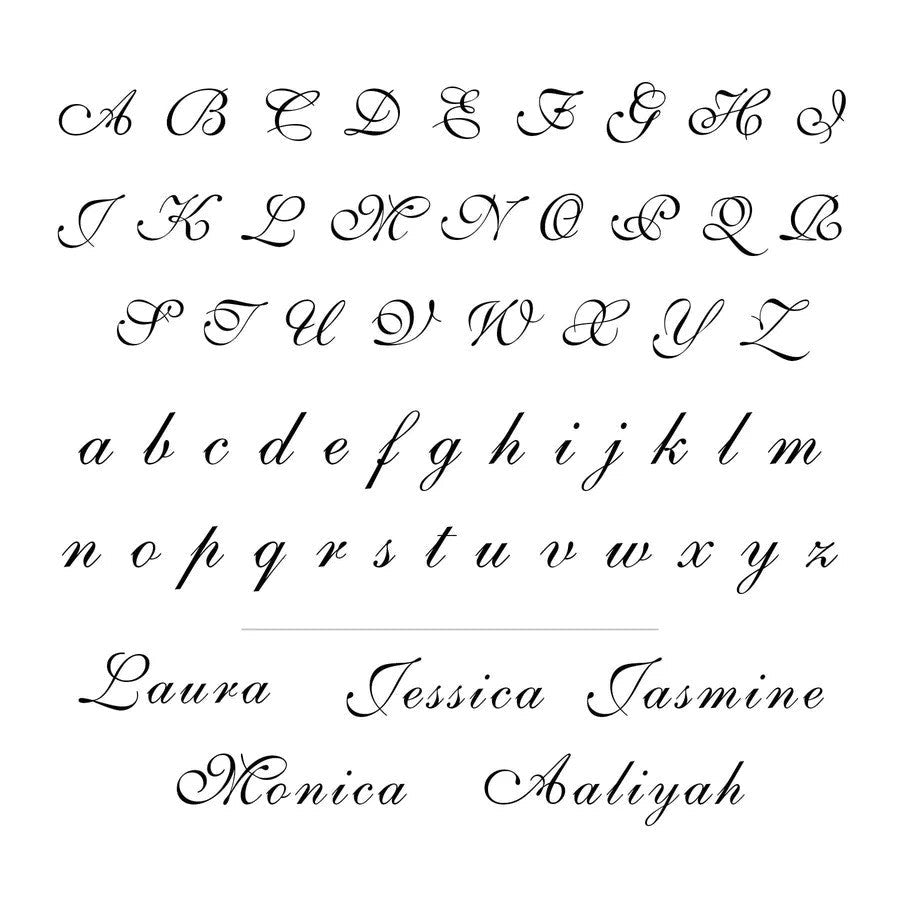 A B C D E F G H I
J K L M N O P Q R
S T U V W X Y Z
a b c d e f g h i j k l m
n o p q r s t u v w x y z
Laura Jessica Jasmine
Monica Aaliyah